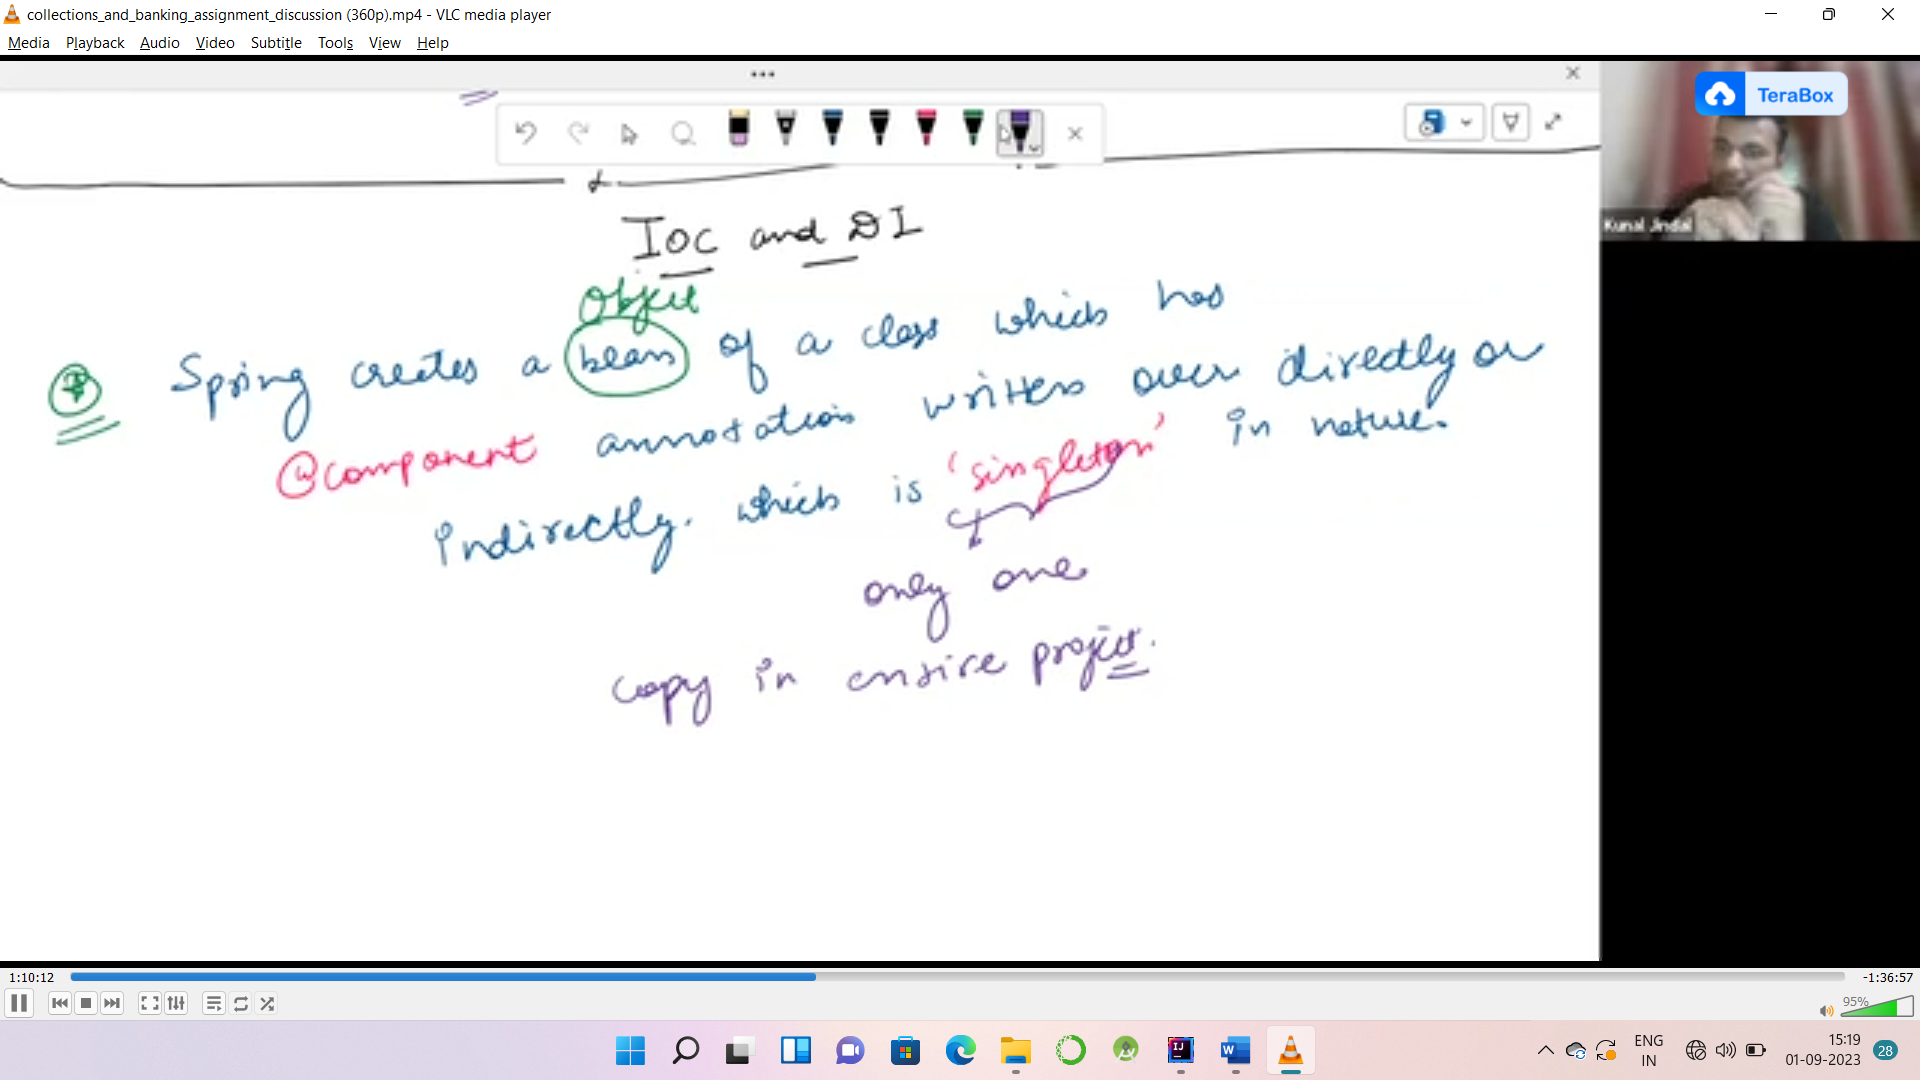 collections_and_banking_assignment_discussion (360p).mp4 - VLC media player
Media Playback Audio Video Subtitle Tools View Help
TeraBox
Kunal Jindal
IOC and DI
Object
Spring creates a bean of a class which has
@component annotation written over directly or
indirectly. which is 'singleton' in nature.
only one
copy in entire project.
1:10:12
-1:36:57
95%
ENG
IN
15:19
01-09-2023
28